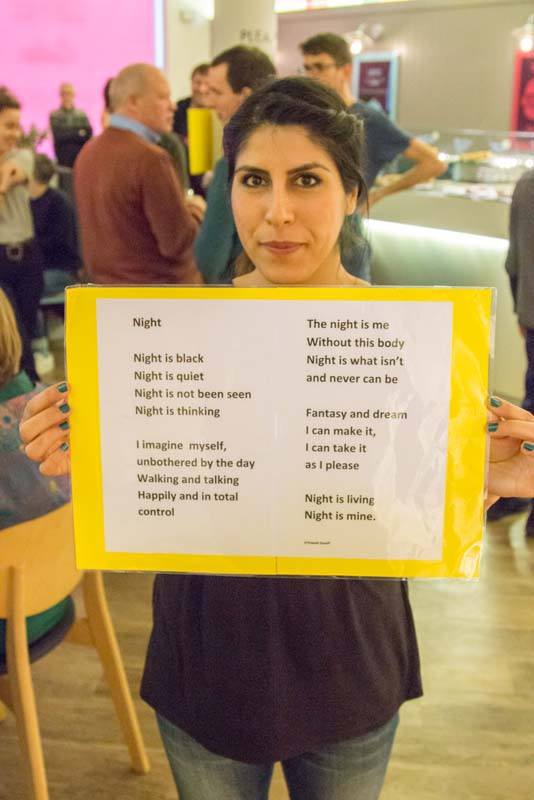 PLEA
Night
Night is black
Night is quiet
Night is not been seen
Night is thinking
I imagine myself,
unbothered by the day
Walking and talking
Happily and in total
control
The night is me
Without this body
Night is what isn't
and never can be
Fantasy and dream
I can make it,
I can take it
as I please
Night is living
Night is mine.